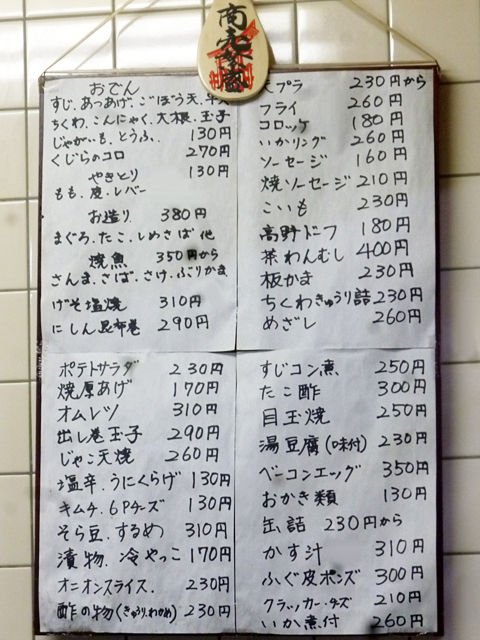 商売繁盛
おでん
すじ.あつあげ.ごぼう天.平天
ちくわ.こんにゃく.大根.玉子
じゃがいも.とうふ. 130円
くじらのコロ 270円
やきとり 130円
もも.皮.レバー
お造り 380円
まぐろ.たこ.しめさば 他
焼魚 350円から
さんま.さば.さけ.ぶりかま
げそ塩焼 310円
にしん昆布巻 290円
天プラ 230円から
フライ 260円
コロッケ 180円
いかリング 260円
ソーセージ 160円
焼ソーセージ 210円
こいも 230円
高野ドーフ 180円
茶わんむし 400円
板かま 230円
ちくわきゅうり詰 230円
めざし 260円
ポテトサラダ 230円
焼厚あげ 170円
オムレツ 310円
出し巻玉子 290円
じゃこ天焼 260円
塩辛.うにくらげ 130円
キムチ.6Pチーズ 130円
そら豆.するめ 310円
漬物.冷やっこ 170円
オニオンスライス. 230円
酢の物(きゅうり.わかめ) 230円
すじコン煮 250円
たこ酢 300円
目玉焼 250円
湯豆腐(味付) 230円
ベーコンエッグ 350円
おかき類 130円
缶詰 230円から
かす汁 310円
ふぐ皮ポンズ 300円
クラッカー.チーズ 210円
いか煮付 260円